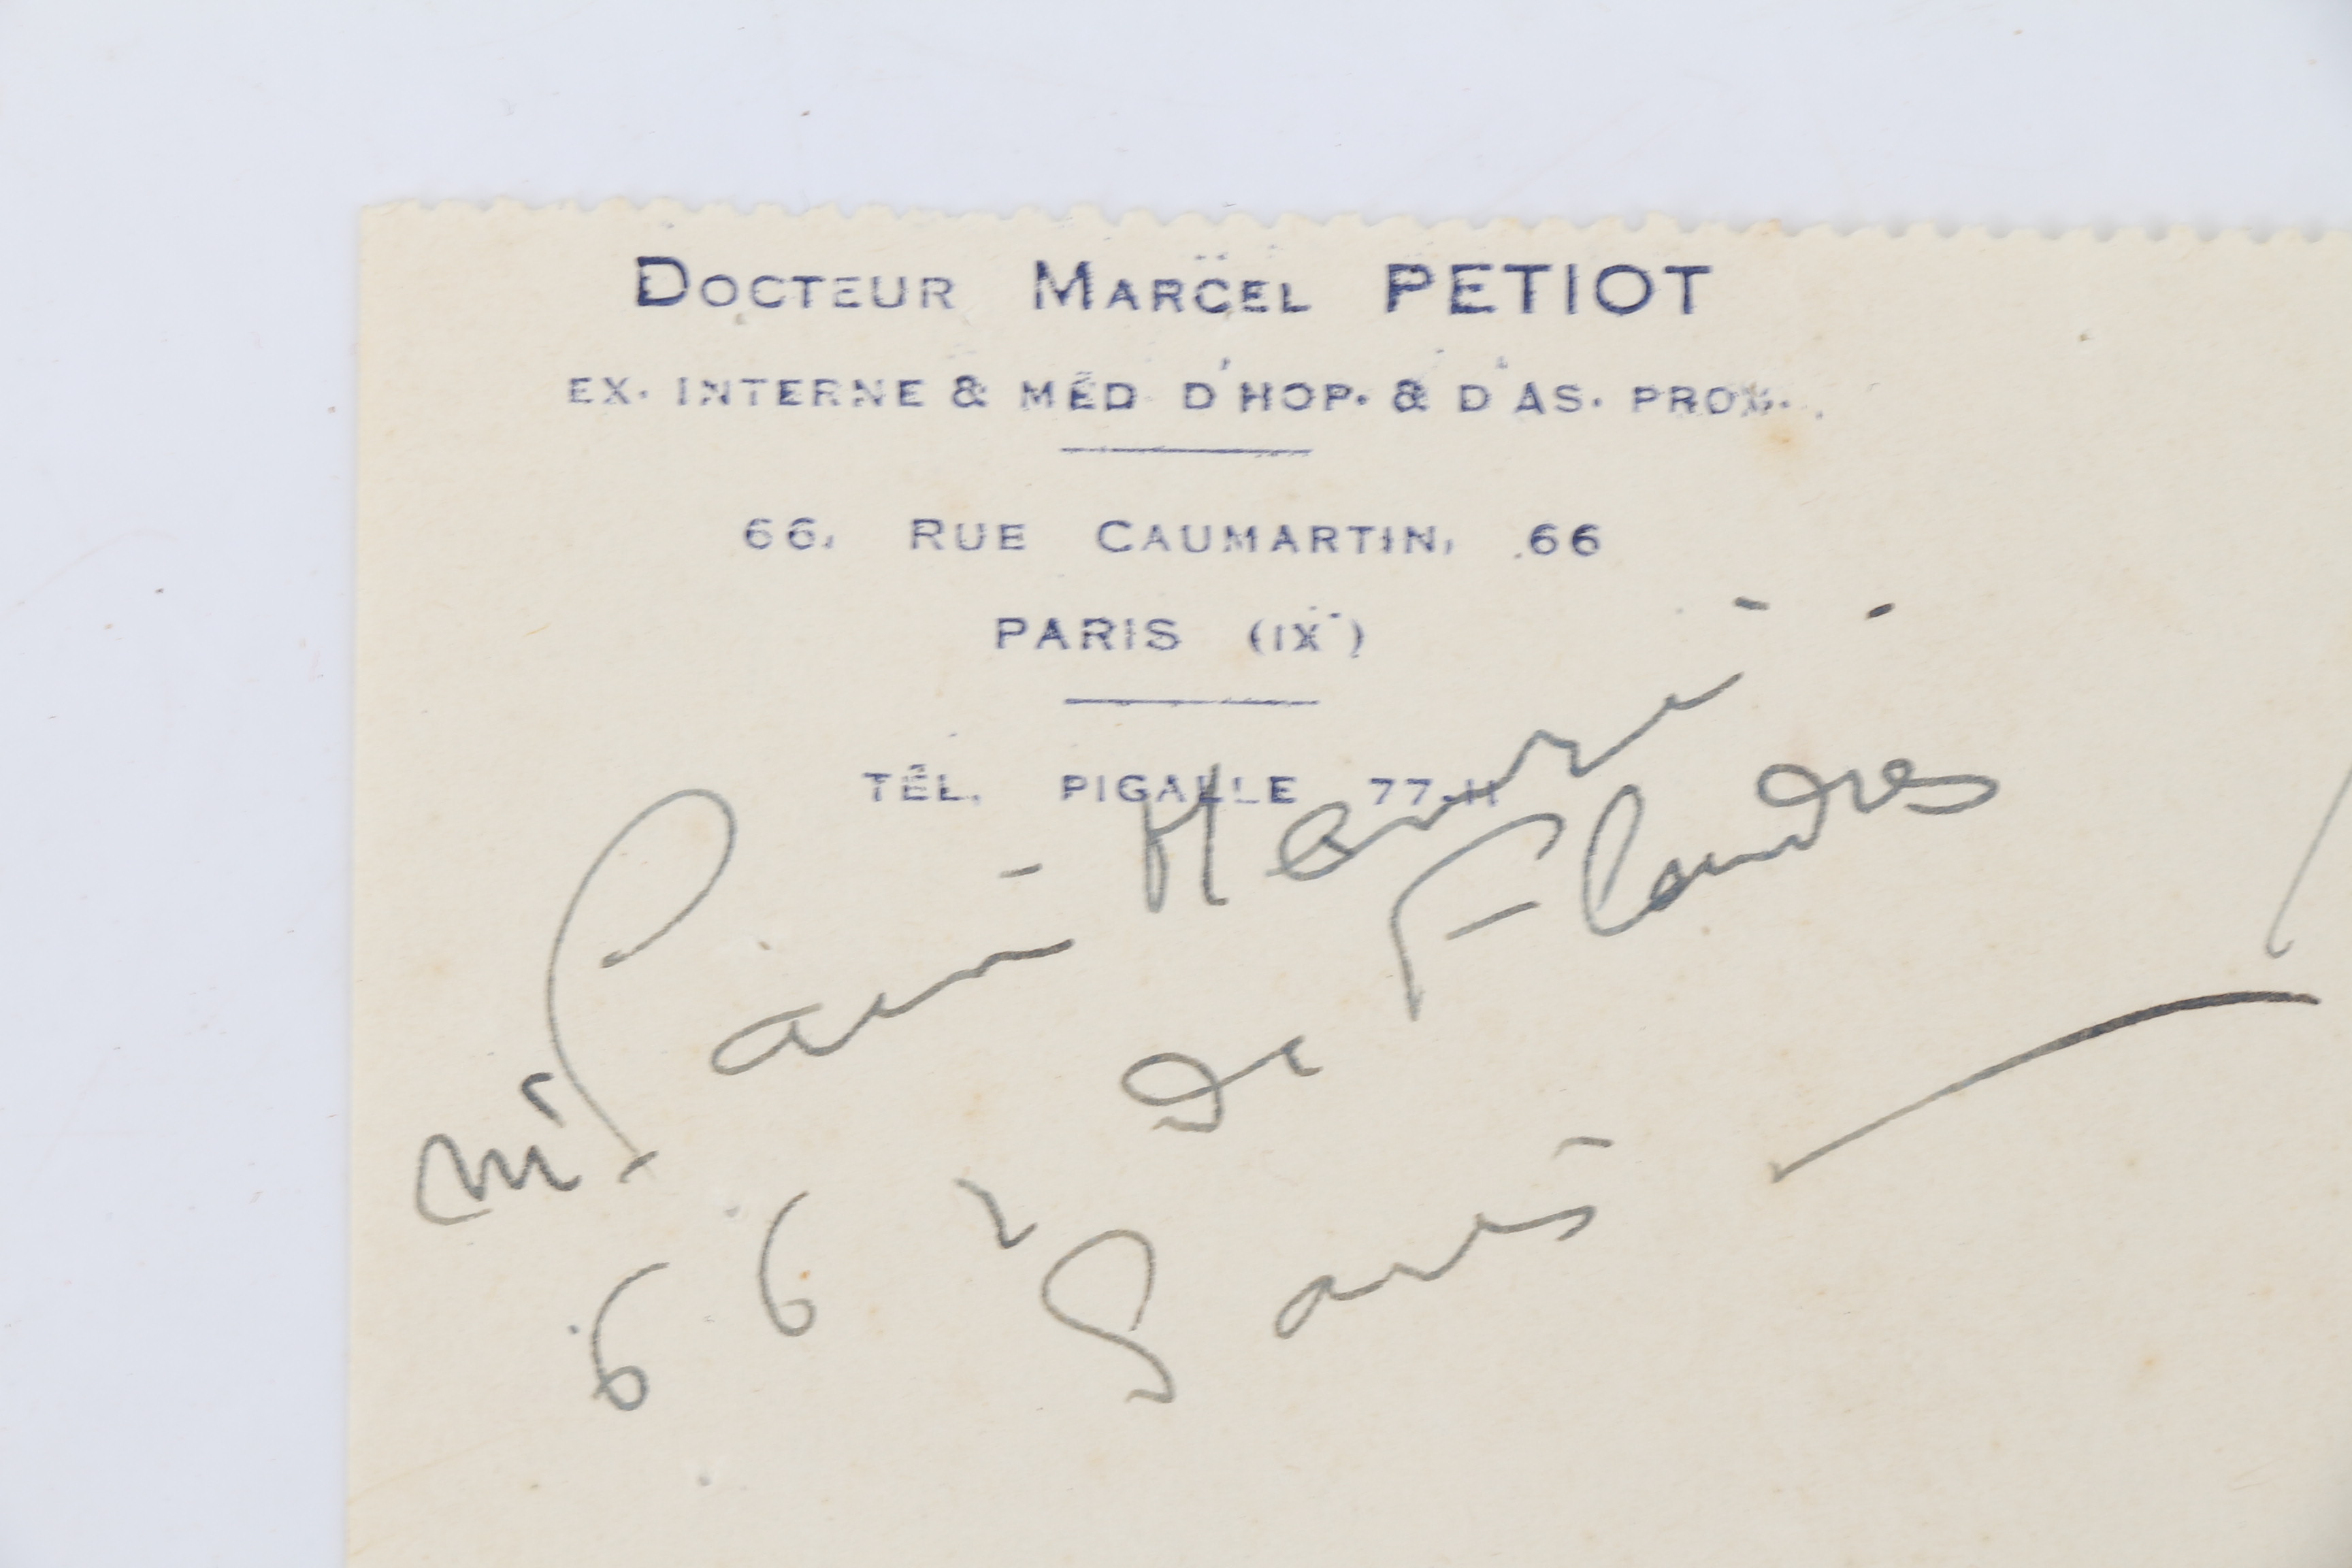 DOCTEUR MARCEL PETIOT
EX. INTERNE & MÉD D'HOP. & D'AS. PROV.
66, RUE CAUMARTIN, 66
PARIS (IXe)
TÉL. PIGALLE 77-11
Mr Henri
de Flandres
66 r
Paris